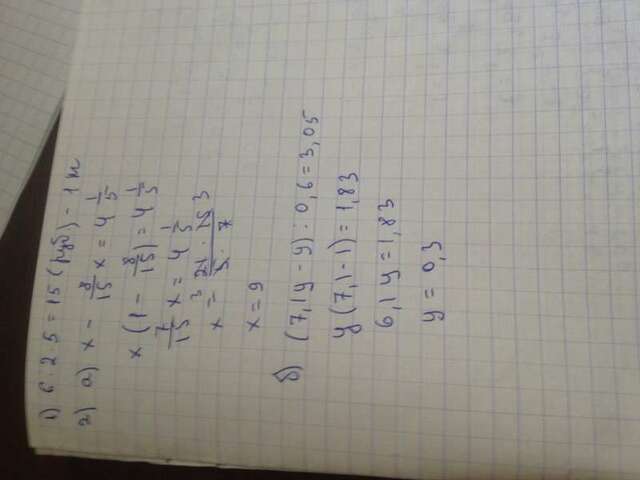 1) 6 · 2 5 = 15 (руб) - 1 м
2) а) x - 8/15 x = 4 1/5
x (1 - 8/15) = 4 1/5
7/15 x = 4 1/5
x = 3 21 · 15 3 / 5 · 7
x = 9
б) (7,1y - y) : 0,6 = 3,05
y (7,1 - 1) = 1,83
6,1 y = 1,83
y = 0,3